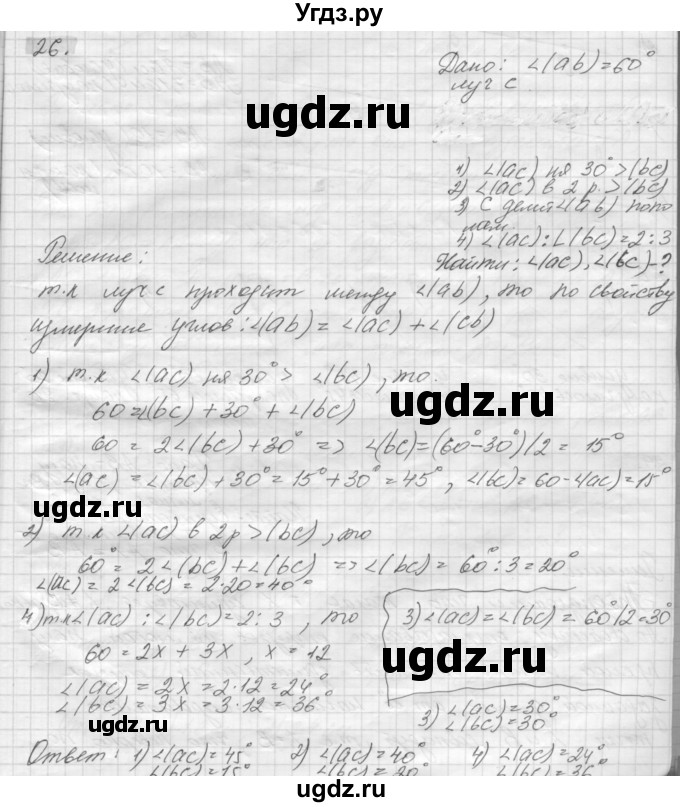 Угдз.ру
26.
Дано: ∠(ab)=60°
луч с
ugdz.ru
1) ∠(ac) на 30° > ∠(bc)
2) ∠(ac) в 2 р. > ∠(bc)
3) с делит ∠(ab) попо
лам
4) ∠(ac):∠(bc)=2:3
Найти: ∠(ac), ∠(bc)-?
Решение:
т.к луч с проходит между ∠(ab), то по свойству
измерение углов: ∠(ab) = ∠(ac) + ∠(cb)
1) т.к ∠(ac) на 30° > ∠(bc), то
60=∠(bc) + 30° + ∠(bc)
ugdz.ru
60 = 2∠(bc) + 30° => ∠(bc)=(60°-30°)/2 = 15°
∠(ac) = ∠(bc) + 30° = 15°+30°=45°, ∠(bc)=60-∠(ac)=15°
ugdz.ru
2) т.к ∠(ac) в 2р > (bc), то
60° = 2∠(bc)+∠(bc) => ∠(bc) = 60°:3=20°
∠(ac) = 2∠(bc) = 2·20=40°
ugdz.ru
4) т.к ∠(ac) : ∠(bc)=2:3, то
3) ∠(ac) = ∠(bc) = 60°/2=30°
60 = 2x + 3x, x = 12
ugdz.ru
∠(ac) = 2x = 2·12=24°
∠(bc) = 3x = 3·12=36°
3) ∠(ac)=30°
∠(bc)=30°
ugdz.ru
Ответ: 1) ∠(ac)=45° 2) ∠(ac)=40° 4) ∠(ac)=24°
∠(bc)=15° ∠(bc)=20° ∠(bc)=36
ugdz.ru